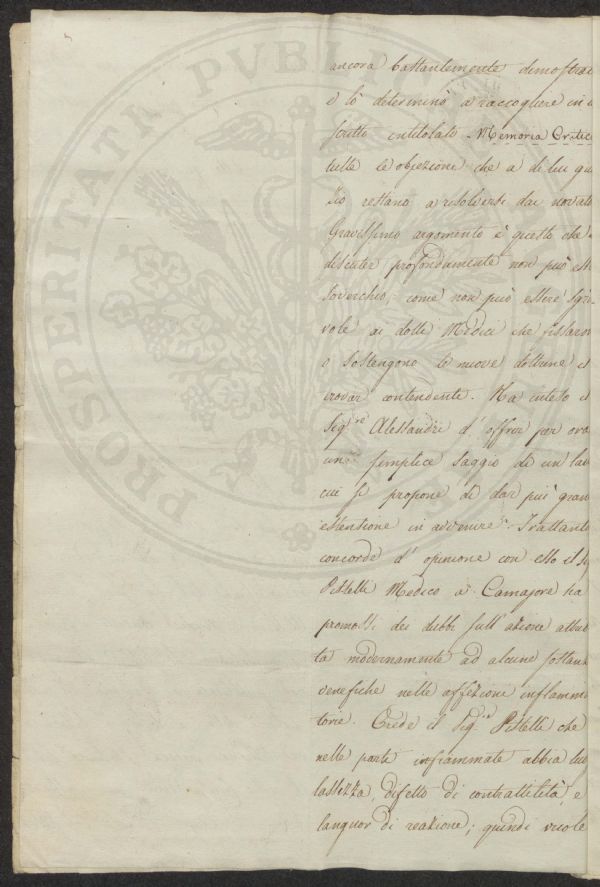 PROSPERITATI PVBLI
ancora bastantemente demostrac
e lo determinò a raccogliere in
scritto intitolato Memoria Critic
tutte le objezione che a di lui
zio restano a risolversi dai novat
Gravissimo argomento è questo che
discuter profondamente non può ess
soverchio, come non può essere sgr
vole ai dotti Medici che
e sostengono le nuove dottrine il
trovar contendente. Ha inteso il
Sig.re Alessandri d'offrir per ora
un semplice saggio di un la
cui si propone di dar più gran
estensione in avvenire. Trattanto
concorde d'opinione con esso il S
Pistelli Medico a Camajore ha
promossi dei dubbi sull'azione attrib
ta modernamente ad alcune sostan
venefiche nelle affezione inflamm
torie. Crede il Sig.r Pistelli che
nelle parti infiammate abbia lu
lassezza, difetto di contrattilità, e
languor di reazione; quindi vuole